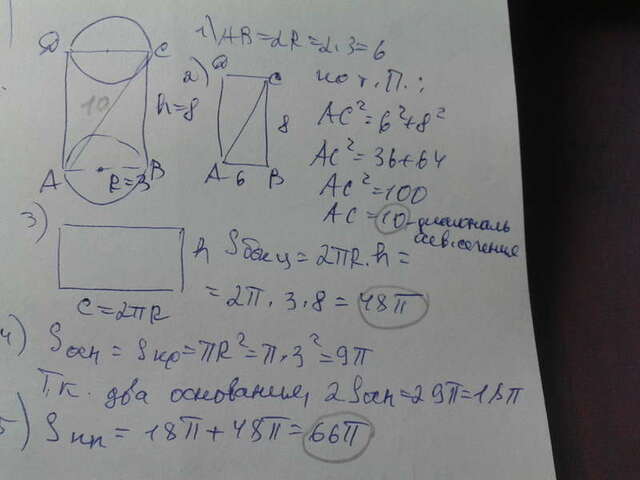 1) AB=2R=2·3=6
D C
10
h=8
A B
R=3
2)
D C
8
A 6 B
по т. П.:
AC²=6²+8²
AC²=36+64
AC²=100
AC=10-диагональ
осев. сечения
3)
h
C=2πR
Sбокц=2πR·h=
=2π·3·8=48π
4) Sосн=Sкр=πR²=π·3²=9π
Т.к. два основания, 2Sосн=29π=18π
5) Sпп=18π+48π=66π